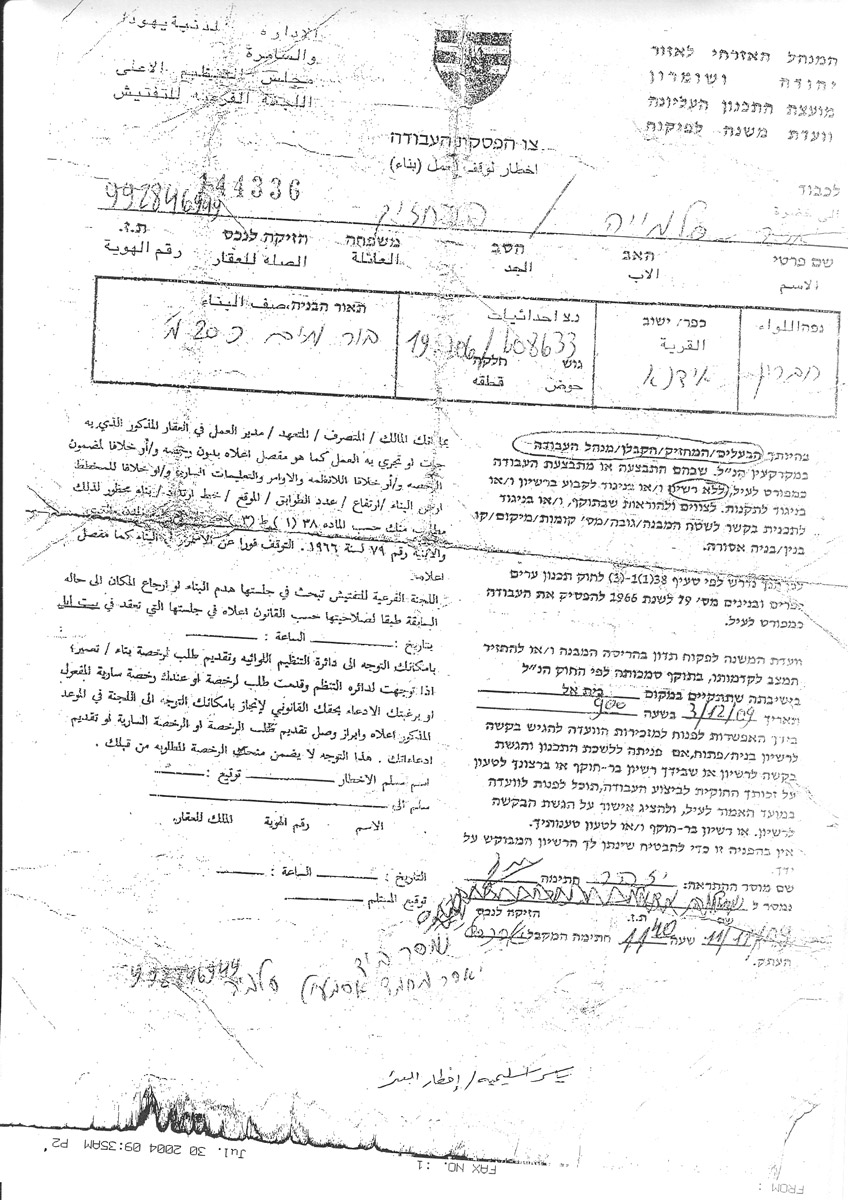 המנהל האזרחי לאזור
יהודה ושומרון
מועצת התכנון העליונה
וועדת משנה לפיקוח
الإدارة المدنية يهودا
والسامرة
مجلس التنظيم الاعلى
اللجنة الفرعية للتفتيش
צו הפסקת העבודה
اخطار لوقف العمل (بناء)
144336
לכבוד
992846949
שם פרטי האב הסב משפחה הזיקה לנכס ת.ז.
الاسم الاب الجد العائلة الصله للعقار رقم الهوية
נפה/اللواء כפר/ ישוב נ.צ احداثيات תאור הבניה، صف البناء
القرية
חברון אידנא בור מים כ 20 מ'
גוש חלקה
حوض قطعه
בהיותך הבעלים/המחזיק/הקבלן/מנהל העבודה
במקרקעין הנ"ל. שבהם התבצעה או מתבצעת העבודה
כמפורט לעיל, ללא רשיון ו/או בניגוד לקבוע ברשיון ו/או
בניגוד לתקנות. לצווים ולהוראות שבתוקף, ו/או בניגוד
לתכנית בקשר לשטח המבנה/גובה/מס' קומות/מיקום/קו
בנין/בניה אסורה.
לכן הנך נדרש לפי סעיף 38(1)-(3) לחוק תכנון ערים
כפרים ובנינים מס' 79 לשנת 1966 להפסיק את העבודה
כמפורט לעיל.
וועדת המשנה לפקוח תדון בהריסת המבנה ו/או להחזיר
המצב לקדמותו, בתוקף סמכותה לפי החוק הנ"ל
בישיבתה שתתקיים במקום בית אל
תאריך 3/12/09 בשעה 900
בידך האפשרות לפנות למזכירות הוועדה להגיש בקשה
לרשיון בניה/פתוח, אם פניתה ללשכת התכנון והגשת
בקשה לרשיון או שבידך רשיון בר-תוקף או ברצונך לטעון
על זכותך החוקית לביצוע העבודה, תוכל לפנות לוועדה
במועד האמור לעיל, ולהציג אישור על הגשת הבקשה
לרשיון. או רשיון בר-תוקף ו/או לטעון טענותיך.
אין בהפניה זו כדי להבטיח שינתן לך הרשיון המבוקש על
ידך.
שם מוסר ההתראה: חתימה
נמסר ל
שם ת.ז. הזיקה לנכס
שעה 1140 חתימת המקבל
העתק.
بما انك المالك / المتصرف / المتعهد / مدير العمل في العقار المذكور الذي به
جرت او تجري به العمل كما هو مفصل اعلاه بدون رخصه و/أو خلافا لمضمون
الرخصه و/أو خلافا للانظمه والاوامر والتعليمات الساريه و/او خلافا للمخطط
ارض البناء /ارتفاع / عدد الطوابق / الموقع / خط ارتداد / بناء محظور لذلك
مطلوب منك حسب الماده ٣٨ (١) ط (٣)
والابنية رقم ٧٩ لسنة ١٩٦٦. التوقف فورا عن الاستمرار في البناء كما مفصل
اعلاه.
اللجنة الفرعية للتفتيش تبحث في جلستها هدم البناء او ارجاع المكان الى حاله
السابقة طبقا لصلاحيتها حسب القانون اعلاه في جلستها التي تعقد في بيت ايل
بتاريخ : الساعة :
بامكانك التوجه الى دائرة التنظيم اللوائيه وتقديم طلب لرخصة بناء / تعمير،
اذا توجهت لدائره التنظم وقدمت طلب لرخصة او عندك رخصة سارية المفعول
او برغبتك الادعاء بحقك القانوني لإنجاز بامكانك التوجه الى اللجنة في الموعد
المذكور اعلاه وابراز وصل تقديم طلب الرخصة او الرخصة السارية او تقديم
ادعاءاتك . هذا التوجه لا يضمن منحك الرخصة المطلوبه من قبلك .
اسم مسلم الاخطار توقيع :
سلم الى
الاسم رقم الهوية المالك للعقار.
التاريخ : الساعة :
توقيع المستلم
992846949
Jul. 30 2004 09:35AM P2
FAX NO. :1
FROM :